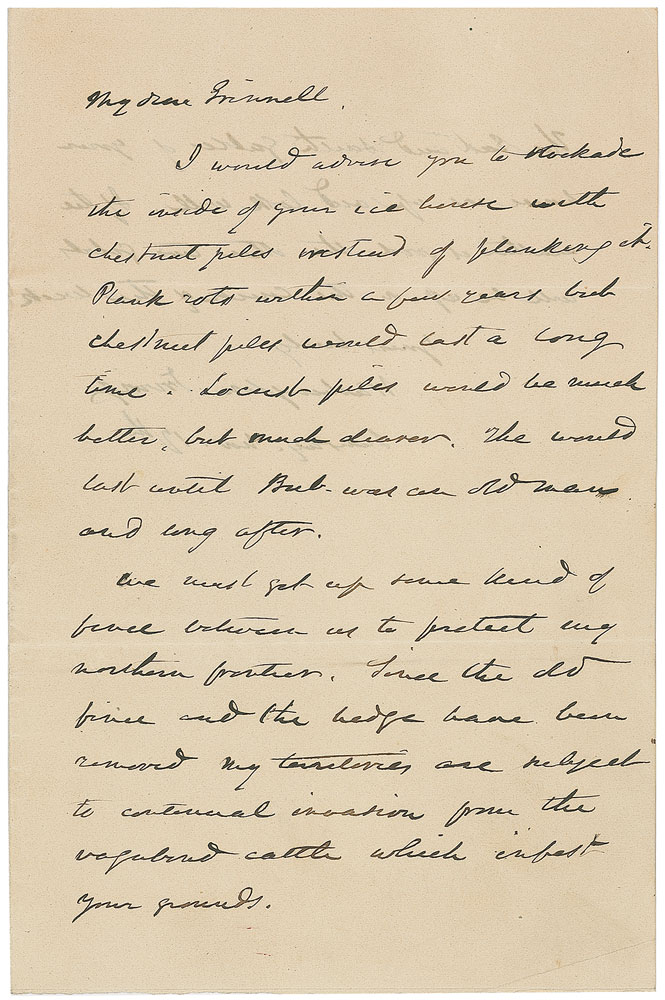 My dear Grinnell.
I would advise you to stockade
the inside of your ice house with
chestnut piles instead of planking it.
Plank rots within a few years but
chestnut piles would last a long
time. Locust piles would be much
better, but much dearer. The would
last until Bub- was an old man
and long after.
We must get up some kind of
fence between us to protect my
northern frontier. Since the old
fence and the hedge have been
removed my territories are subject
to continual invasion from the
vagabond cattle which infest
your grounds.